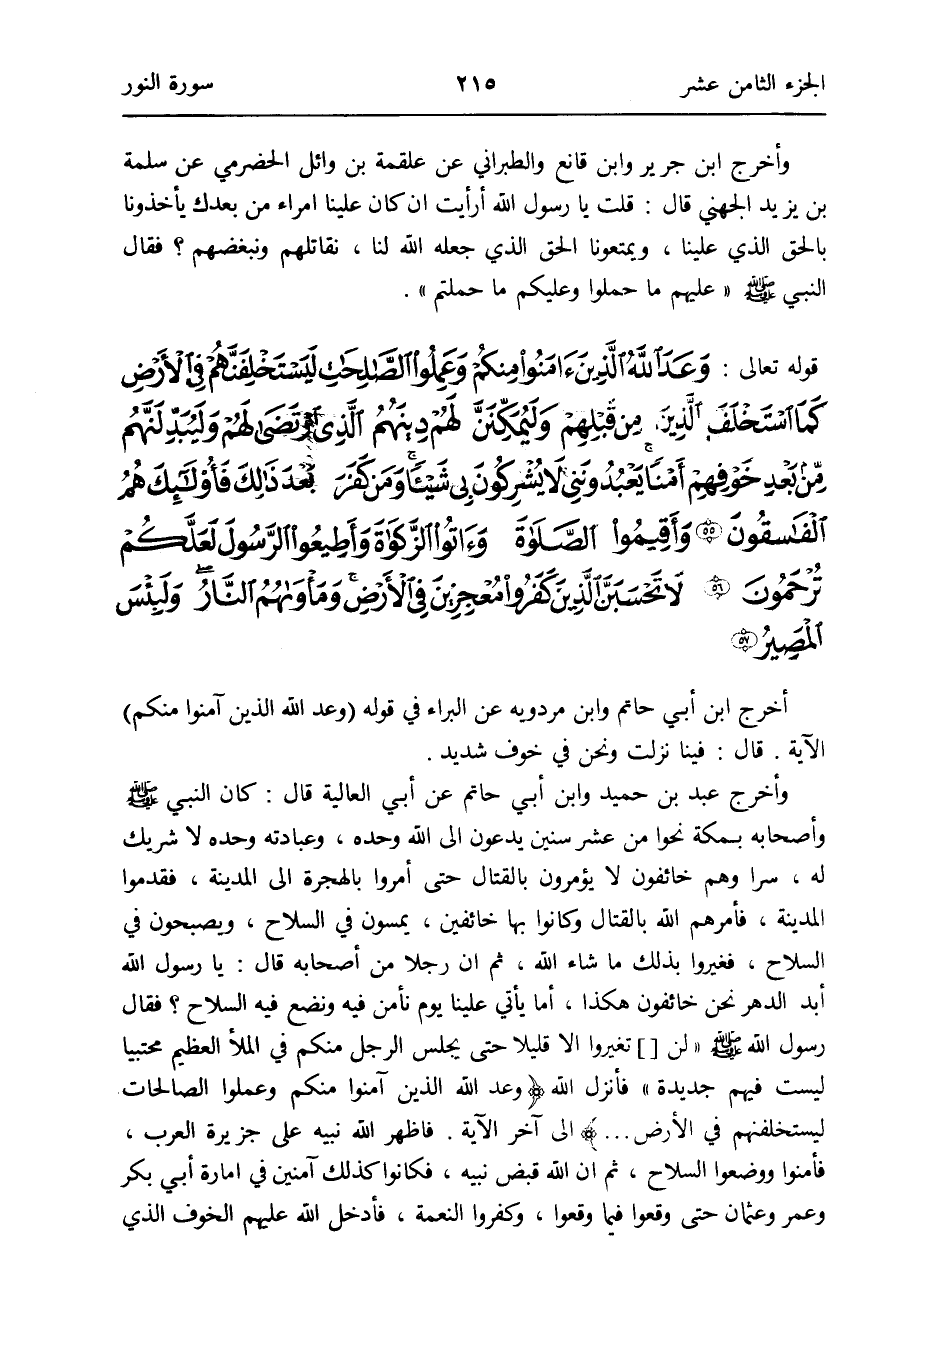 الجزء الثامن عشر ٢١٥ سورة النور
وأخرج ابن جرير وابن قانع والطبراني عن علقمة بن وائل الحضرمي عن سلمة
بن يزيد الجهني قال : قلت يا رسول الله أرأيت ان كان علينا امراء من بعدك يأخذونا
بالحق الذي علينا ، ويمتعونا الحق الذي جعله الله لنا ، نقاتلهم ونبغضهم ؟ فقال
النبي ﷺ « عليهم ما حملوا وعليكم ما حملتم » .
قوله تعالى : وَعَدَ ٱللَّهُ ٱلَّذِينَ ءَامَنُواْ مِنكُمْ وَعَمِلُواْ ٱلصَّـٰلِحَـٰتِ لَيَسْتَخْلِفَنَّهُمْ فِى ٱلْأَرْضِ
كَمَا ٱسْتَخْلَفَ ٱلَّذِينَ مِن قَبْلِهِمْ وَلَيُمَكِّنَنَّ لَهُمْ دِينَهُمُ ٱلَّذِى ٱرْتَضَىٰ لَهُمْ وَلَيُبَدِّلَنَّهُم
مِّنۢ بَعْدِ خَوْفِهِمْ أَمْنًا ۚ يَعْبُدُونَنِى لَا يُشْرِكُونَ بِى شَيْـًٔا ۚ وَمَن كَفَرَ بَعْدَ ذَٰلِكَ فَأُوْلَـٰٓئِكَ هُمُ
ٱلْفَـٰسِقُونَ ﴿٥٥﴾ وَأَقِيمُواْ ٱلصَّلَوٰةَ وَءَاتُواْ ٱلزَّكَوٰةَ وَأَطِيعُواْ ٱلرَّسُولَ لَعَلَّكُمْ
تُرْحَمُونَ ﴿٥٦﴾ لَا تَحْسَبَنَّ ٱلَّذِينَ كَفَرُواْ مُعْجِزِينَ فِى ٱلْأَرْضِ ۚ وَمَأْوَىٰهُمُ ٱلنَّارُ ۖ وَلَبِئْسَ
ٱلْمَصِيرُ ﴿٥٧﴾
أخرج ابن أبي حاتم وابن مردويه عن البراء في قوله (وعد الله الذين آمنوا منكم)
الآية . قال : فينا نزلت ونحن في خوف شديد .
وأخرج عبد بن حميد وابن أبي حاتم عن أبي العالية قال : كان النبي ﷺ
وأصحابه بمكة نحوا من عشر سنين يدعون الى الله وحده ، وعبادته وحده لا شريك
له ، سرا وهم خائفون لا يؤمرون بالقتال حتى أمروا بالهجرة الى المدينة ، فقدموا
المدينة ، فأمرهم الله بالقتال وكانوا بها خائفين ، يمسون في السلاح ، ويصبحون في
السلاح ، فغيروا بذلك ما شاء الله ، ثم ان رجلا من أصحابه قال : يا رسول الله
أبد الدهر نحن خائفون هكذا ، أما يأتي علينا يوم نأمن فيه ونضع فيه السلاح ؟ فقال
رسول الله ﷺ « لن [ ] تغيروا الا قليلا حتى يجلس الرجل منكم في الملأ العظيم محتبيا
ليست فيهم جديدة » فأنزل الله ﴿ وعد الله الذين آمنوا منكم وعملوا الصالحات
ليستخلفنهم في الأرض ... ﴾ الى آخر الآية . فاظهر الله نبيه على جزيرة العرب ،
فأمنوا ووضعوا السلاح ، ثم ان الله قبض نبيه ، فكانوا كذلك آمنين في امارة أبي بكر
وعمر وعثمان حتى وقعوا فيما وقعوا ، وكفروا النعمة ، فأدخل الله عليهم الخوف الذي